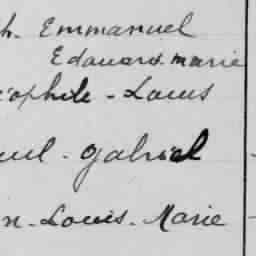 h. Emmanuel
Edouard. marie
éophile - Louis
uel. Gabriel
n. Louis. Marie